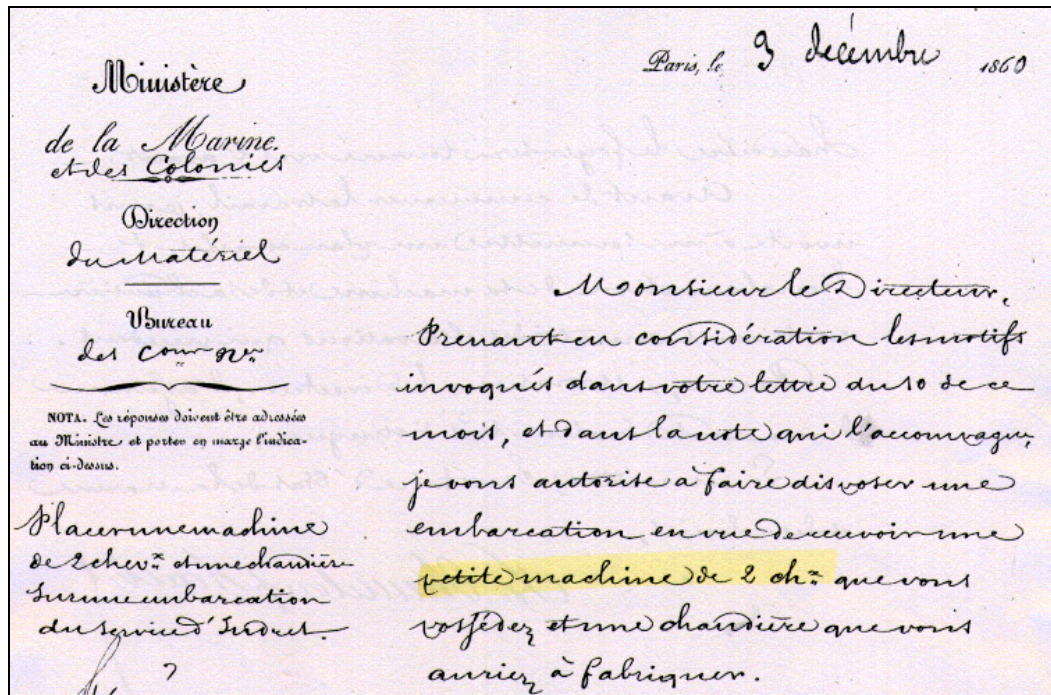 Paris, le 3 décembre 1860
Ministère
de la Marine
et des Colonies
Direction
du Matériel
Bureau
des
NOTA. Les réponses doivent être adressées
au Ministre et porter en marge l'indica-
tion ci-dessus.
Placer une machine
de 2 chev.x et une chaudière
sur une embarcation
du service d'Indret.
Monsieur le Directeur,
Prenant en considération les motifs
invoqués dans votre lettre du 10 de ce
mois, et dans la note qui l'accompagne,
je vous autorise à faire disposer une
embarcation, en vue de recevoir une
petite machine de 2 ch.x que vous
possédez et une chaudière que vous
auriez à fabriquer.